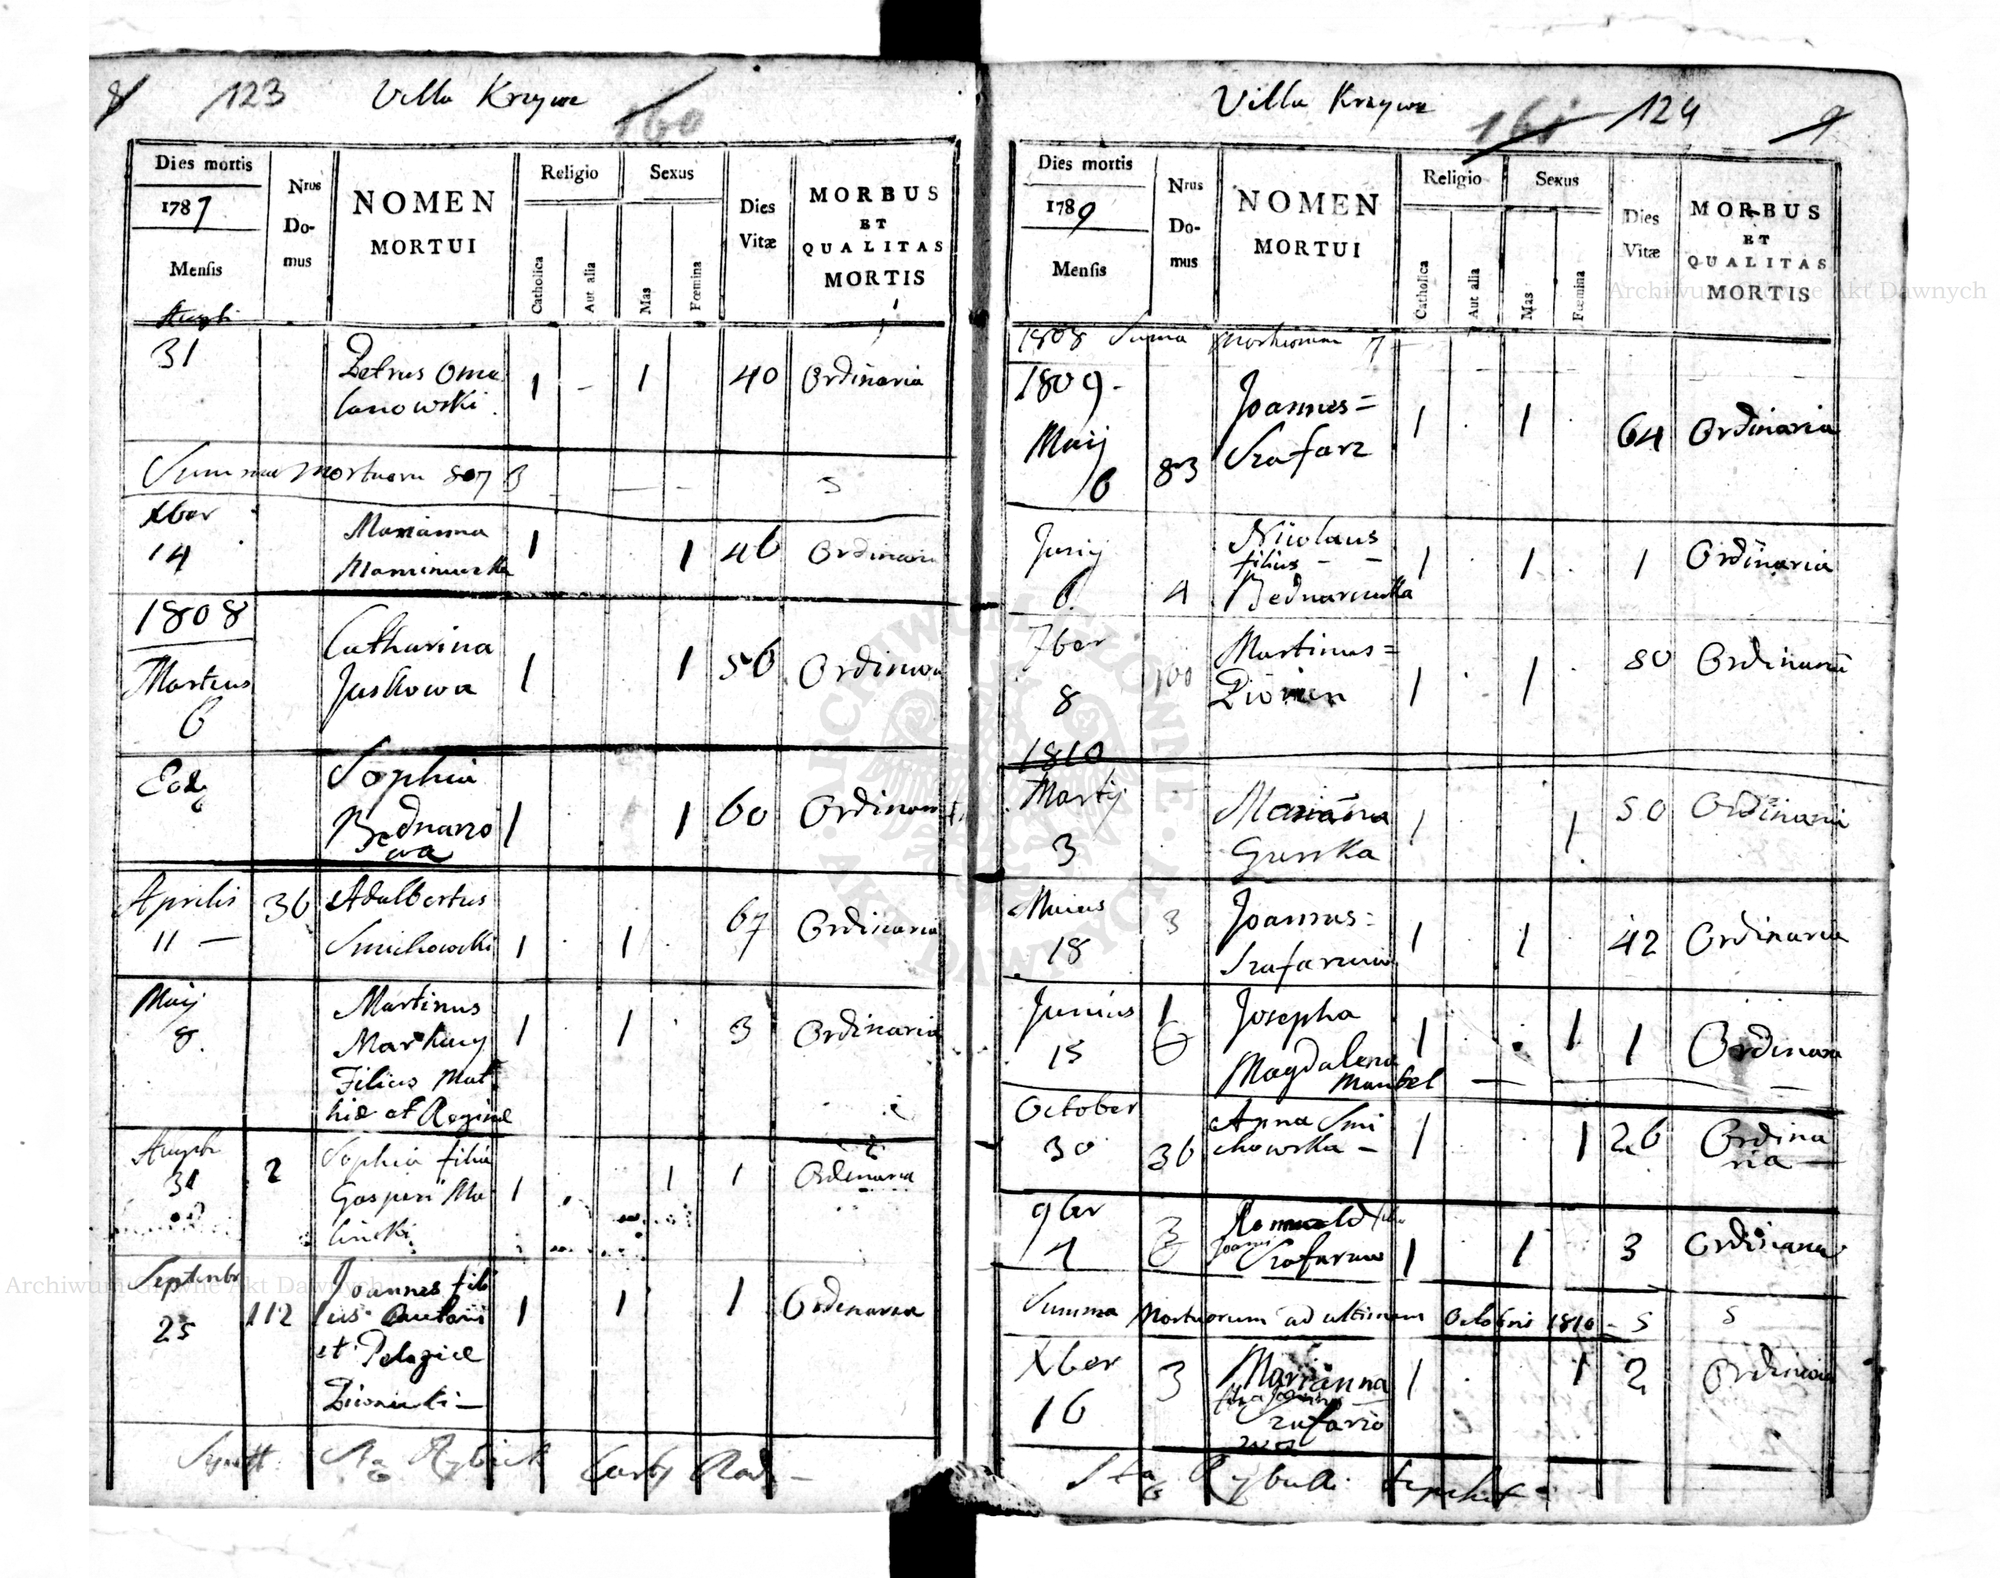 8 123 Villa Krzywe 160
Dies mortis
1787
Mensis
Nrus
Do-
mus
NOMEN
MORTUI
Religio
Catholica
Aut alia
Sexus
Mas
Fœmina
Dies
Vitæ
MORBUS
ET
QUALITAS
MORTIS
Augusti
31 Petrus Oma
lanowski 1 - 1 40 Ordinaria
Summa Mortuoru 807 3
Xber
14 Marianna 1 1 46 Ordinaria
1808
Martius
6
Catharina
Juskowa 1 1 56 Ordinaria
Sophia
Bednarzo
wa 1 1 60 Ordinaria
Aprilis
11 — 36 Adalbertus
Smichowski 1 1 67 Ordinaria
Maij
8. Martinus
Markuy
Filius Mat
hiæ et Reginæ 1 1 3 Ordinaria
31 2 Sophia filia
Gasperi Ma
linski 1 1 1 Ordinaria
Septembr
25 112 Joannes fili
ius
et Pelagiæ 1 1 1 Ordinaria
Villa Krzywe 161 124 9
Dies mortis
1789
Mensis
Nrus
Do-
mus
NOMEN
MORTUI
Religio
Catholica
Aut alia
Sexus
Mas
Fœmina
Dies
Vitæ
MORBUS
ET
QUALITAS
MORTIS
1808 Suma Mortuorum 7
1809 -
Maij
6 83 Joannes =
Szafarz 1 1 64 Ordinaria
Junij
6. 4 Nicolaus
filius - -
Bednarczuka 1 1 1 Ordinaria
7ber
8 100 Martinus =
1 1 80 Ordinaria
1810
Martij
3 Marianna
Gurska 1 1 50 Ordinaria
Maius
18 3 Joannes =
1 1 42 Ordinaria
Junius
15 1
6 Josepha
Magdalena
Mantel 1 1 1 Ordinaria
October
30 36 Anna Smi
chowska - 1 1 26 Ordina
ria —
9ber
3
6 Romuald
Joanni
1 1 3 Ordinaria
Summa Mortuorum ad ultimam Octobris 1810 - 5 5
Xber
16 3 Marianna
filia Joannis
1 1 2 Ordinaria
Archiwum Główne Akt Dawnych
Archiwum Główne Akt Dawnych
ARCHIWUM GŁÓWNE AKT DAWNYCH